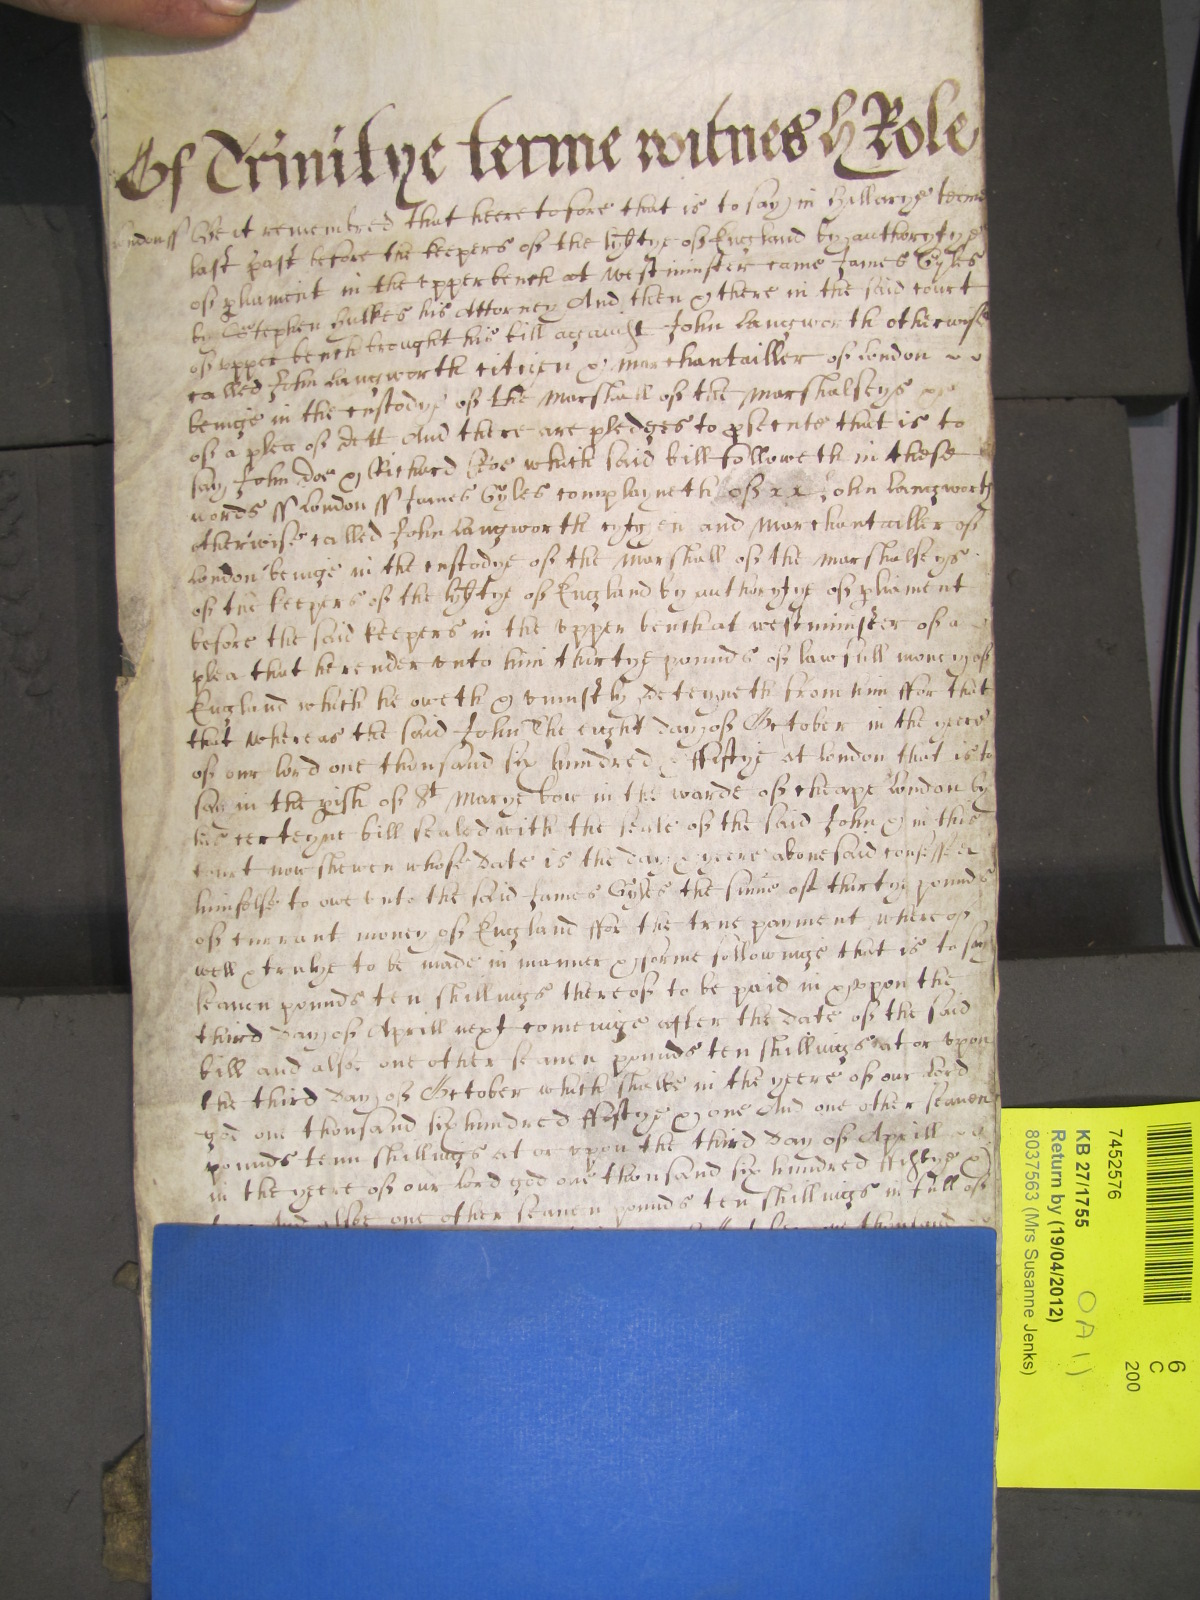 Of Trinitye terme witnes H Role
London ss Be it remembred that heeretofore that is to say in Hillarye terme
last past before the keepers of the lib'tye of England by authorytye
of p'liament in the upper bench at westminster came James Gyles
by Stephen Hulkes his Attorney And then & there in the said court
of upper bench brought his bill against John Langworth otherwise
called John Langworth citizen & marchantailler of London
beinge in the custodye of the Marshall of the Marshalseye
of a plea of dett And there are pledges to p'secute that is to
say John Doe & Richard Roe which said bill followeth in these
words ss London ss James Gyles complayneth of John Langworth
otherwise called John Langworth cytyzen and Marchantailler of
London beinge in the custodye of the Marshall of the marshalseye
of the keepers of the lib'tye of England by authorytye of p'liament
before the said keepers in the upper bench at westminster of a
plea that he render unto him thirtye pounds of lawfull money of
England which he oweth & uniustly deteyneth from him ffor that
that whereas the said John The eight day of October in the yeere
of our lord one thousand six hundred ffiftye at London that is to
say in the p'ish of St Marye bow in the warde of cheape London by
his certeyne bill sealed with the seale of the said John & in this
court now shewen whose date is the day & yeere abovesaid confessed
himselfe to owe unto the said James Gyles the sume of thirtye pounds
of currant money of England ffor the true payment whereof
well & trulye to be made in manner & forme followinge that is to say
seaven pounds ten shillings thereof to be paid in & upon the
third day of Aprill next comeinge after the date of the said
bill and alsoe one other seaven pounds ten shillings at or upon
the third day of October which shalbe in the yeere of our Lord
god one thousand six hundred ffiftye & one And one other seaven
pounds tenn shillings at or upon the third day of Aprill
in the yeere of our lord god one thousand six hundred ffiftye &
And alsoe one other seaven pounds ten shillings in full of
thousand
7452576
KB 27/1755
Return by (19/04/2012)
8037563 (Mrs Susanne Jenks)
6
C
200